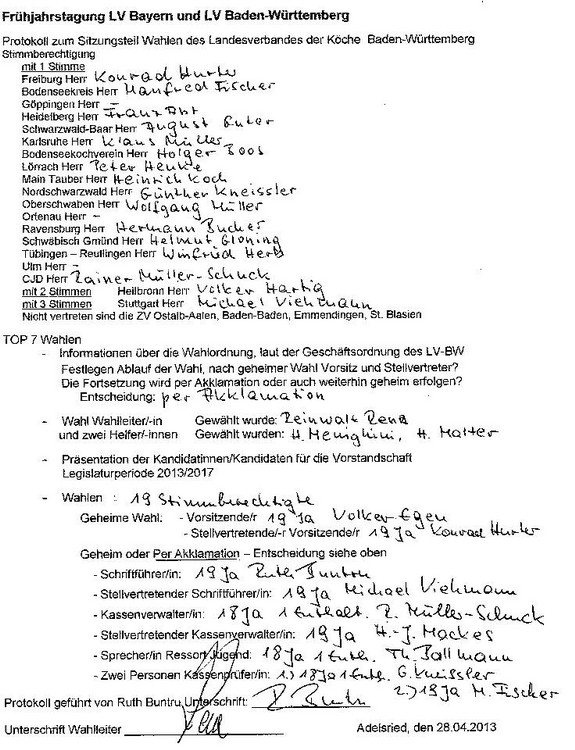 Frühjahrstagung LV Bayern und LV Baden-Württemberg
Protokoll zum Sitzungsteil Wahlen des Landesverbandes der Köche Baden-Württemberg
Stimmberechtigung
mit 1 Stimme
Freiburg Herr Konrad Hurter
Bodenseekreis Herr Manfred Fischer
Göppingen Herr –
Heidelberg Herr Franz
Schwarzwald-Baar Herr August
Karlsruhe Herr Klaus Müller
Bodenseekochverein Herr Holger Boos
Lörrach Herr Peter Henke
Main Tauber Herr Heinrich Koch
Nordschwarzwald Herr Günther Kneissler
Oberschwaben Herr Wolfgang Müller
Ortenau Herr –
Ravensburg Herr Hermann Bucher
Schwäbisch Gmünd Herr Helmut Gloning
Tübingen – Reutlingen Herr Winfried
Ulm Herr –
CJD Herr Rainer Müller-Schuck
mit 2 Stimmen Heilbronn Herr Volker Hartig
mit 3 Stimmen Stuttgart Herr Michael Viehmann
Nicht vertreten sind die ZV Ostalb-Aalen, Baden-Baden, Emmendingen, St. Blasien
TOP 7 Wahlen
- Informationen über die Wahlordnung, laut der Geschäftsordnung des LV-BW
Festlegen Ablauf der Wahl, nach geheimer Wahl Vorsitz und Stellvertreter?
Die Fortsetzung wird per Akklamation oder auch weiterhin geheim erfolgen?
Entscheidung: per Akklamation
- Wahl Wahlleiter/-in Gewählt wurde: Reinwalt Rena
und zwei Helfer/-innen Gewählt wurden: H. Menighini, H. Matter
- Präsentation der Kandidatinnen/Kandidaten für die Vorstandschaft
Legislaturperiode 2013/2017
- Wahlen : 19 Stimmberechtigte
Geheime Wahl: - Vorsitzende/r 19 Ja Volker Egen
- Stellvertretende/-r Vorsitzende/r 19 Ja Konrad Hurter
Geheim oder Per Akklamation – Entscheidung siehe oben
- Schriftführer/in: 19 Ja Ruth Buntru
- Stellvertretender Schriftführer/in: 19 Ja Michael Viehmann
- Kassenverwalter/in: 18 Ja 1 Enthalt. R. Müller-Schuck
- Stellvertretender Kassenverwalter/in: 19 Ja H.-J. Mackes
- Sprecher/in Ressort Jugend: 18 Ja 1 Enth. Th. Ballmann
- Zwei Personen Kassenprüfer/in: 1.) 18 Ja 1 Enth. G. Kneissler
2.) 19 Ja M. Fischer
Protokoll geführt von Ruth Buntru, Unterschrift: R. Buntru
Unterschrift Wahlleiter Adelsried, den 28.04.2013